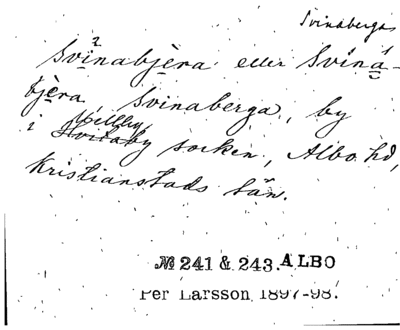 Svinaberga
Svinabjèra eller Svina-
bjèra, Svinaberga, by
Mellby
i Hvitaby socken, Albo hd,
Kristianstads län.
№ 241 & 243. ALBO
Per Larsson 1897-98.